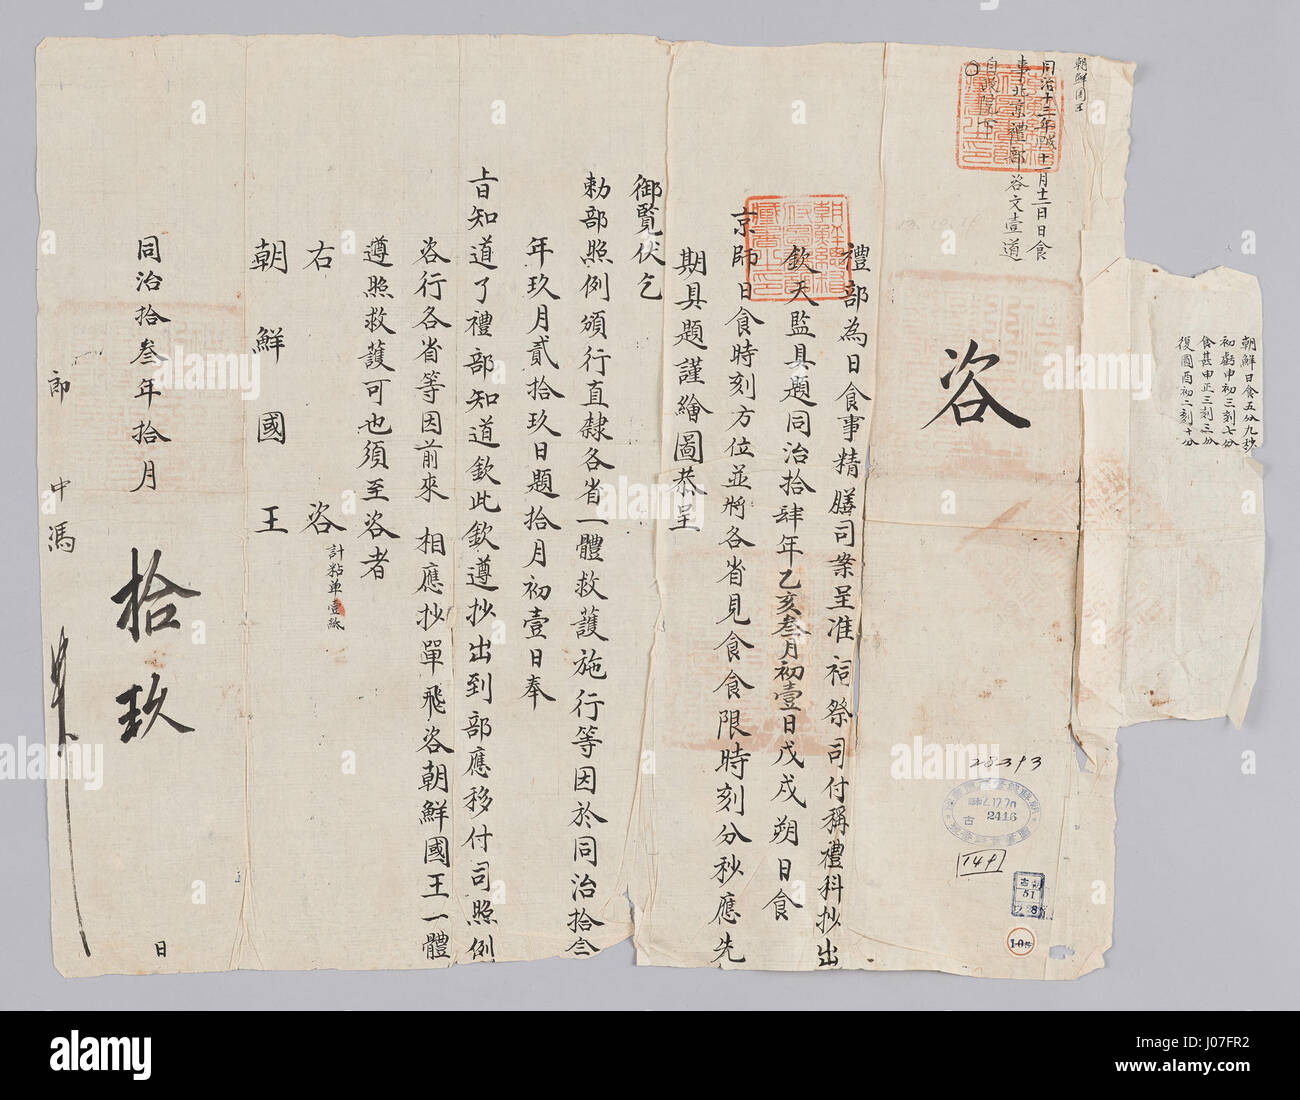 朝鮮國王
同治十三年 十一月十二日日食
事北京禮部咨文壹道
朝鮮日食五分九秒
初虧申初三刻七分
食甚申正三刻三分
復圓酉初二刻十分
咨
禮部為日食事精膳司案呈准祠祭司付稱禮科抄出
欽天監具題同治拾肆年乙亥叁月初壹日戊戌朔日食
京師日食時刻方位並將各省見食食限時刻分秒應先
期具題謹繪圖恭呈
御覽伏乞
勅部照例頒行直隸各省一體救護施行等因於同治拾叁
年玖月貳拾玖日題拾月初壹日奉
旨知道了禮部知道欽此欽遵抄出到部應移付司照例
咨行各省等因前來 相應抄單飛咨朝鮮國王一體
遵照救護可也須至咨者
右 咨
計粘單壹紙
朝鮮國王
同治拾叁年拾月 拾玖 日
郎中馮
28393
2416
古
149
51
alamy
Image ID: J07FR2
www.alamy.com